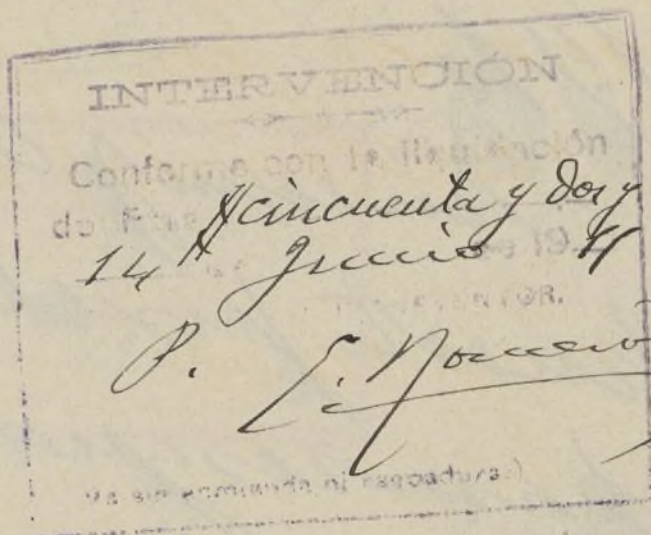 INTERVENCIÓN
Conforme con la liquidación
de Ptas cincuenta y dos y
14 Junio de 19
INTERVENTOR.
P. E. Romero
Va sin enmienda ni raspaduras)